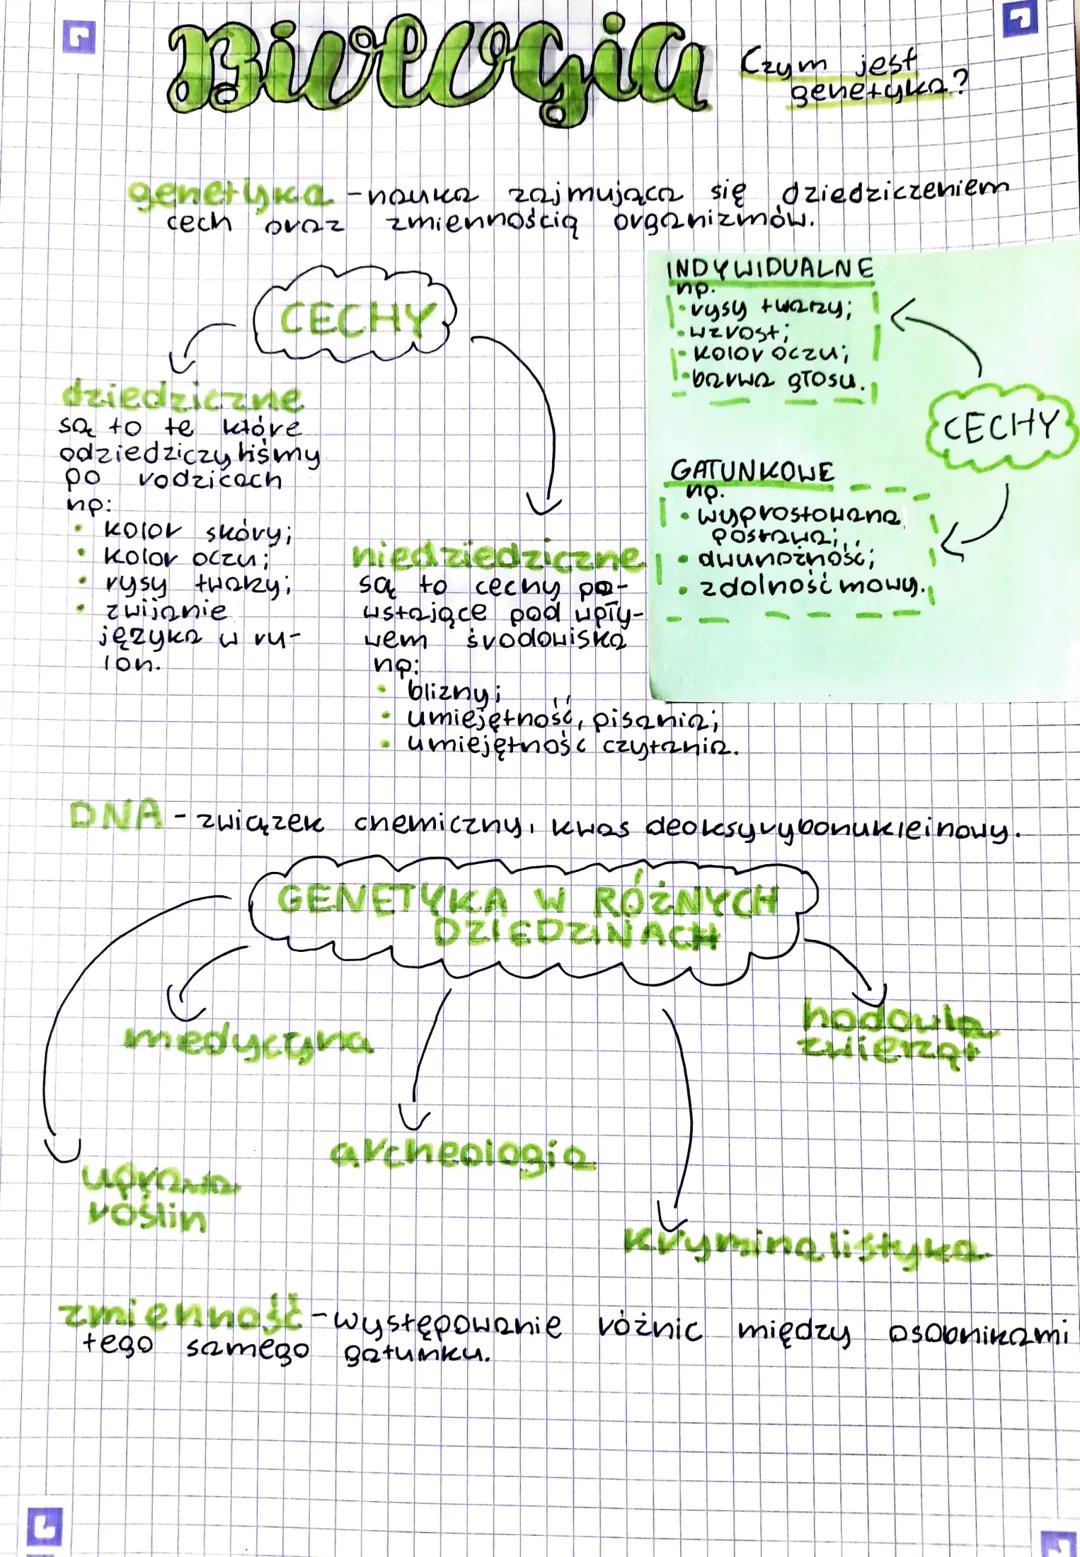 Biologia
Czym jest
genetyka?
genetyka - nauka zajmująca się dziedziczeniem
cech oraz zmiennością organizmów.
CECHY
dziedziczne
są to te które
odziedziczyliśmy
po rodzicach
np:
• kolor skóry;
• kolor oczu;
• rysy twarzy;
• zwijanie
języka w ru-
lon.
niedziedziczne
są to cechy po-
wstające pod wpły-
wem środowiska
np:
• blizny;
• umiejętność pisania;
• umiejętność czytania.
INDYWIDUALNE
np.
• rysy twarzy;
• wzrost;
• kolor oczu;
• barwa głosu.
CECHY
GATUNKOWE
np.
• wyprostowana
postawa;
• dwunożność;
• zdolność mowy.
DNA - związek chemiczny, kwas deoksyrybonukleinowy.
GENETYKA W RÓŻNYCH
DZIEDZINACH
medycyna
hodowla
zwierząt
archeologia
uprawa
roślin
kryminalistyka
zmienność - występowanie różnic między osobnikami
tego samego gatunku.